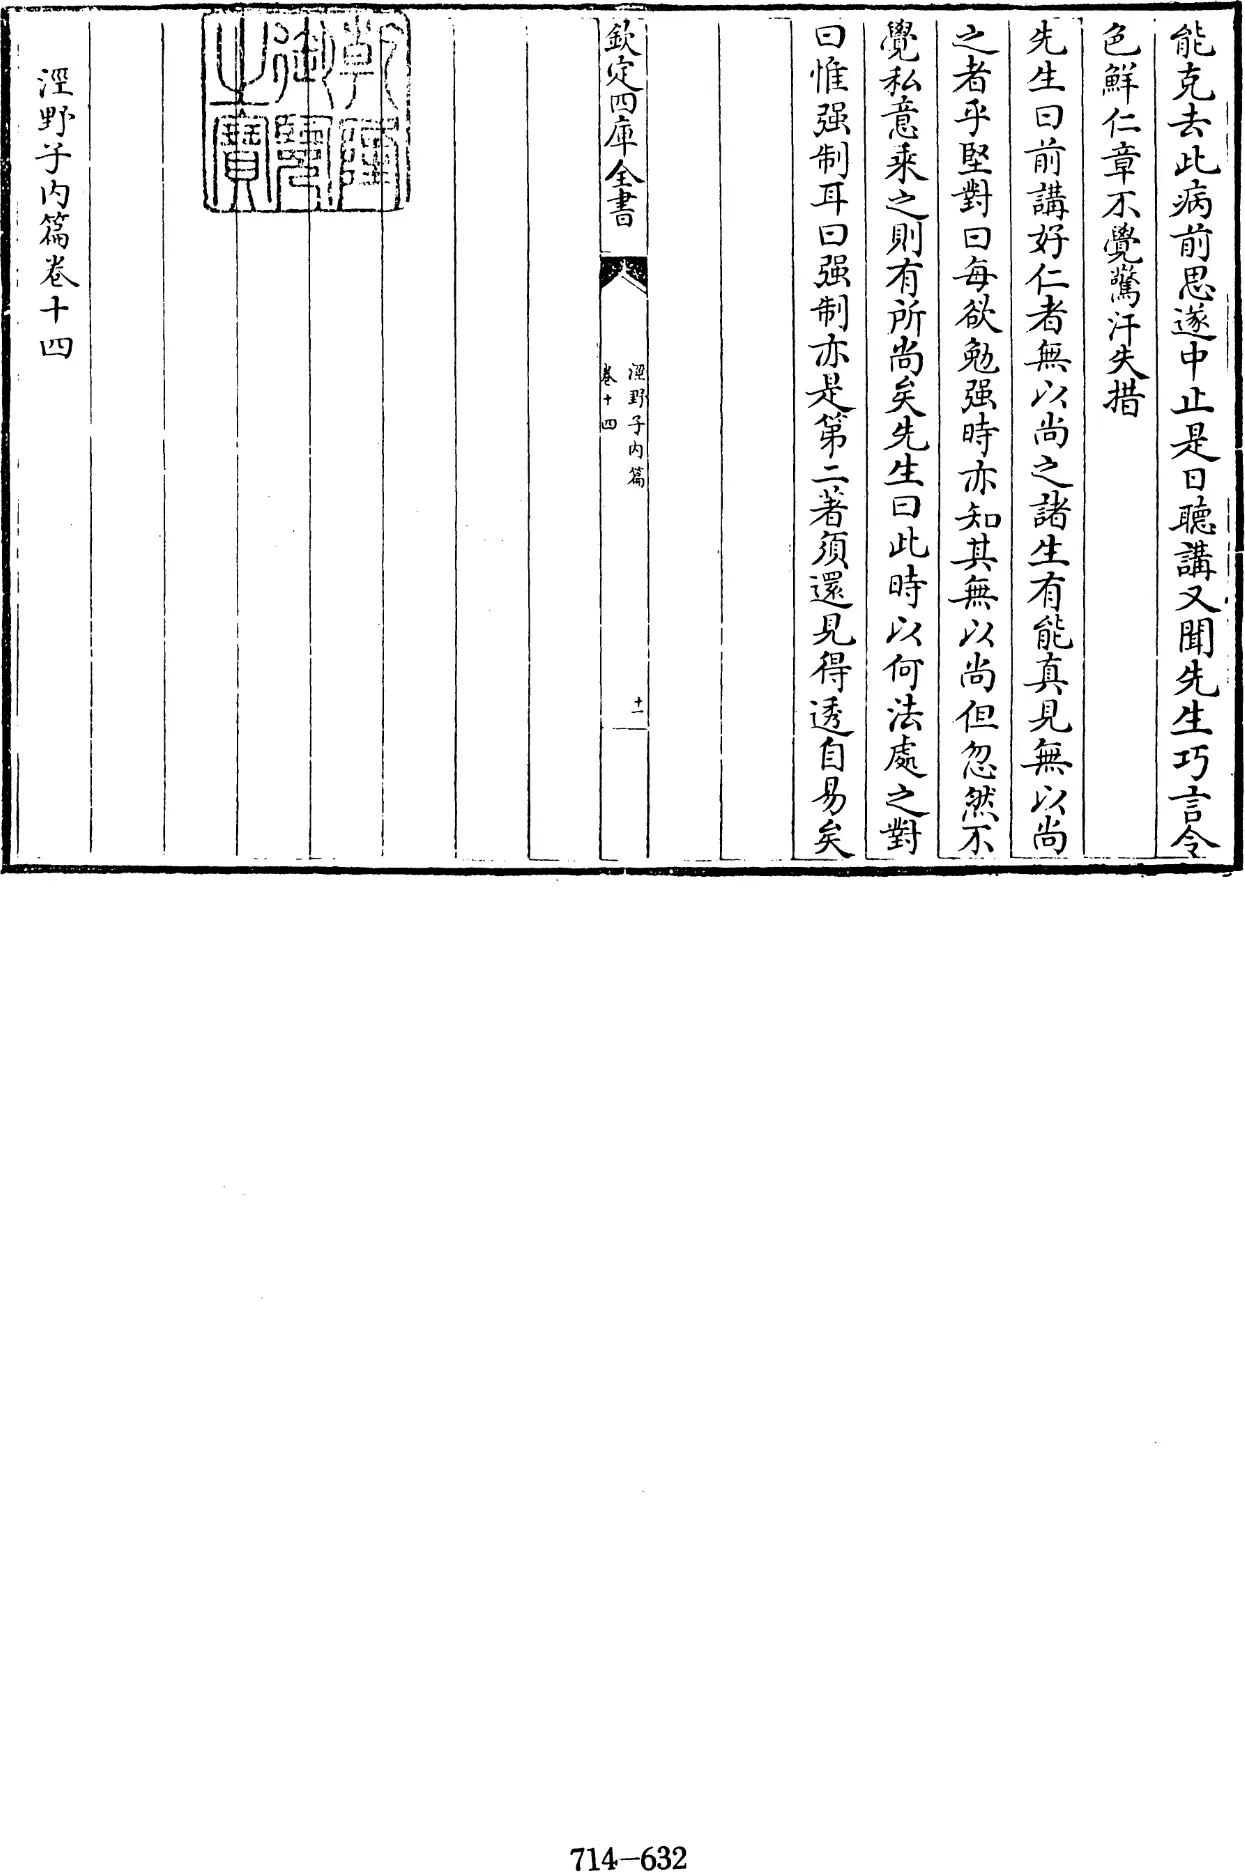 能克去此病前思遂中止是日聽講又聞先生巧言令
色鮮仁章不覺驚汗失措
先生曰前講好仁者無以尚之諸生有能真見無以尚
之者乎堅對曰每欲勉强時亦知其無以尚但忽然不
覺私意乘之則有所尚矣先生曰此時以何法處之對
曰惟强制耳曰强制亦是第二著須還見得透自易矣
欽定四庫全書
涇野子內篇
卷十四
十一
乾隆御覽之寶
涇野子內篇卷十四
714-632